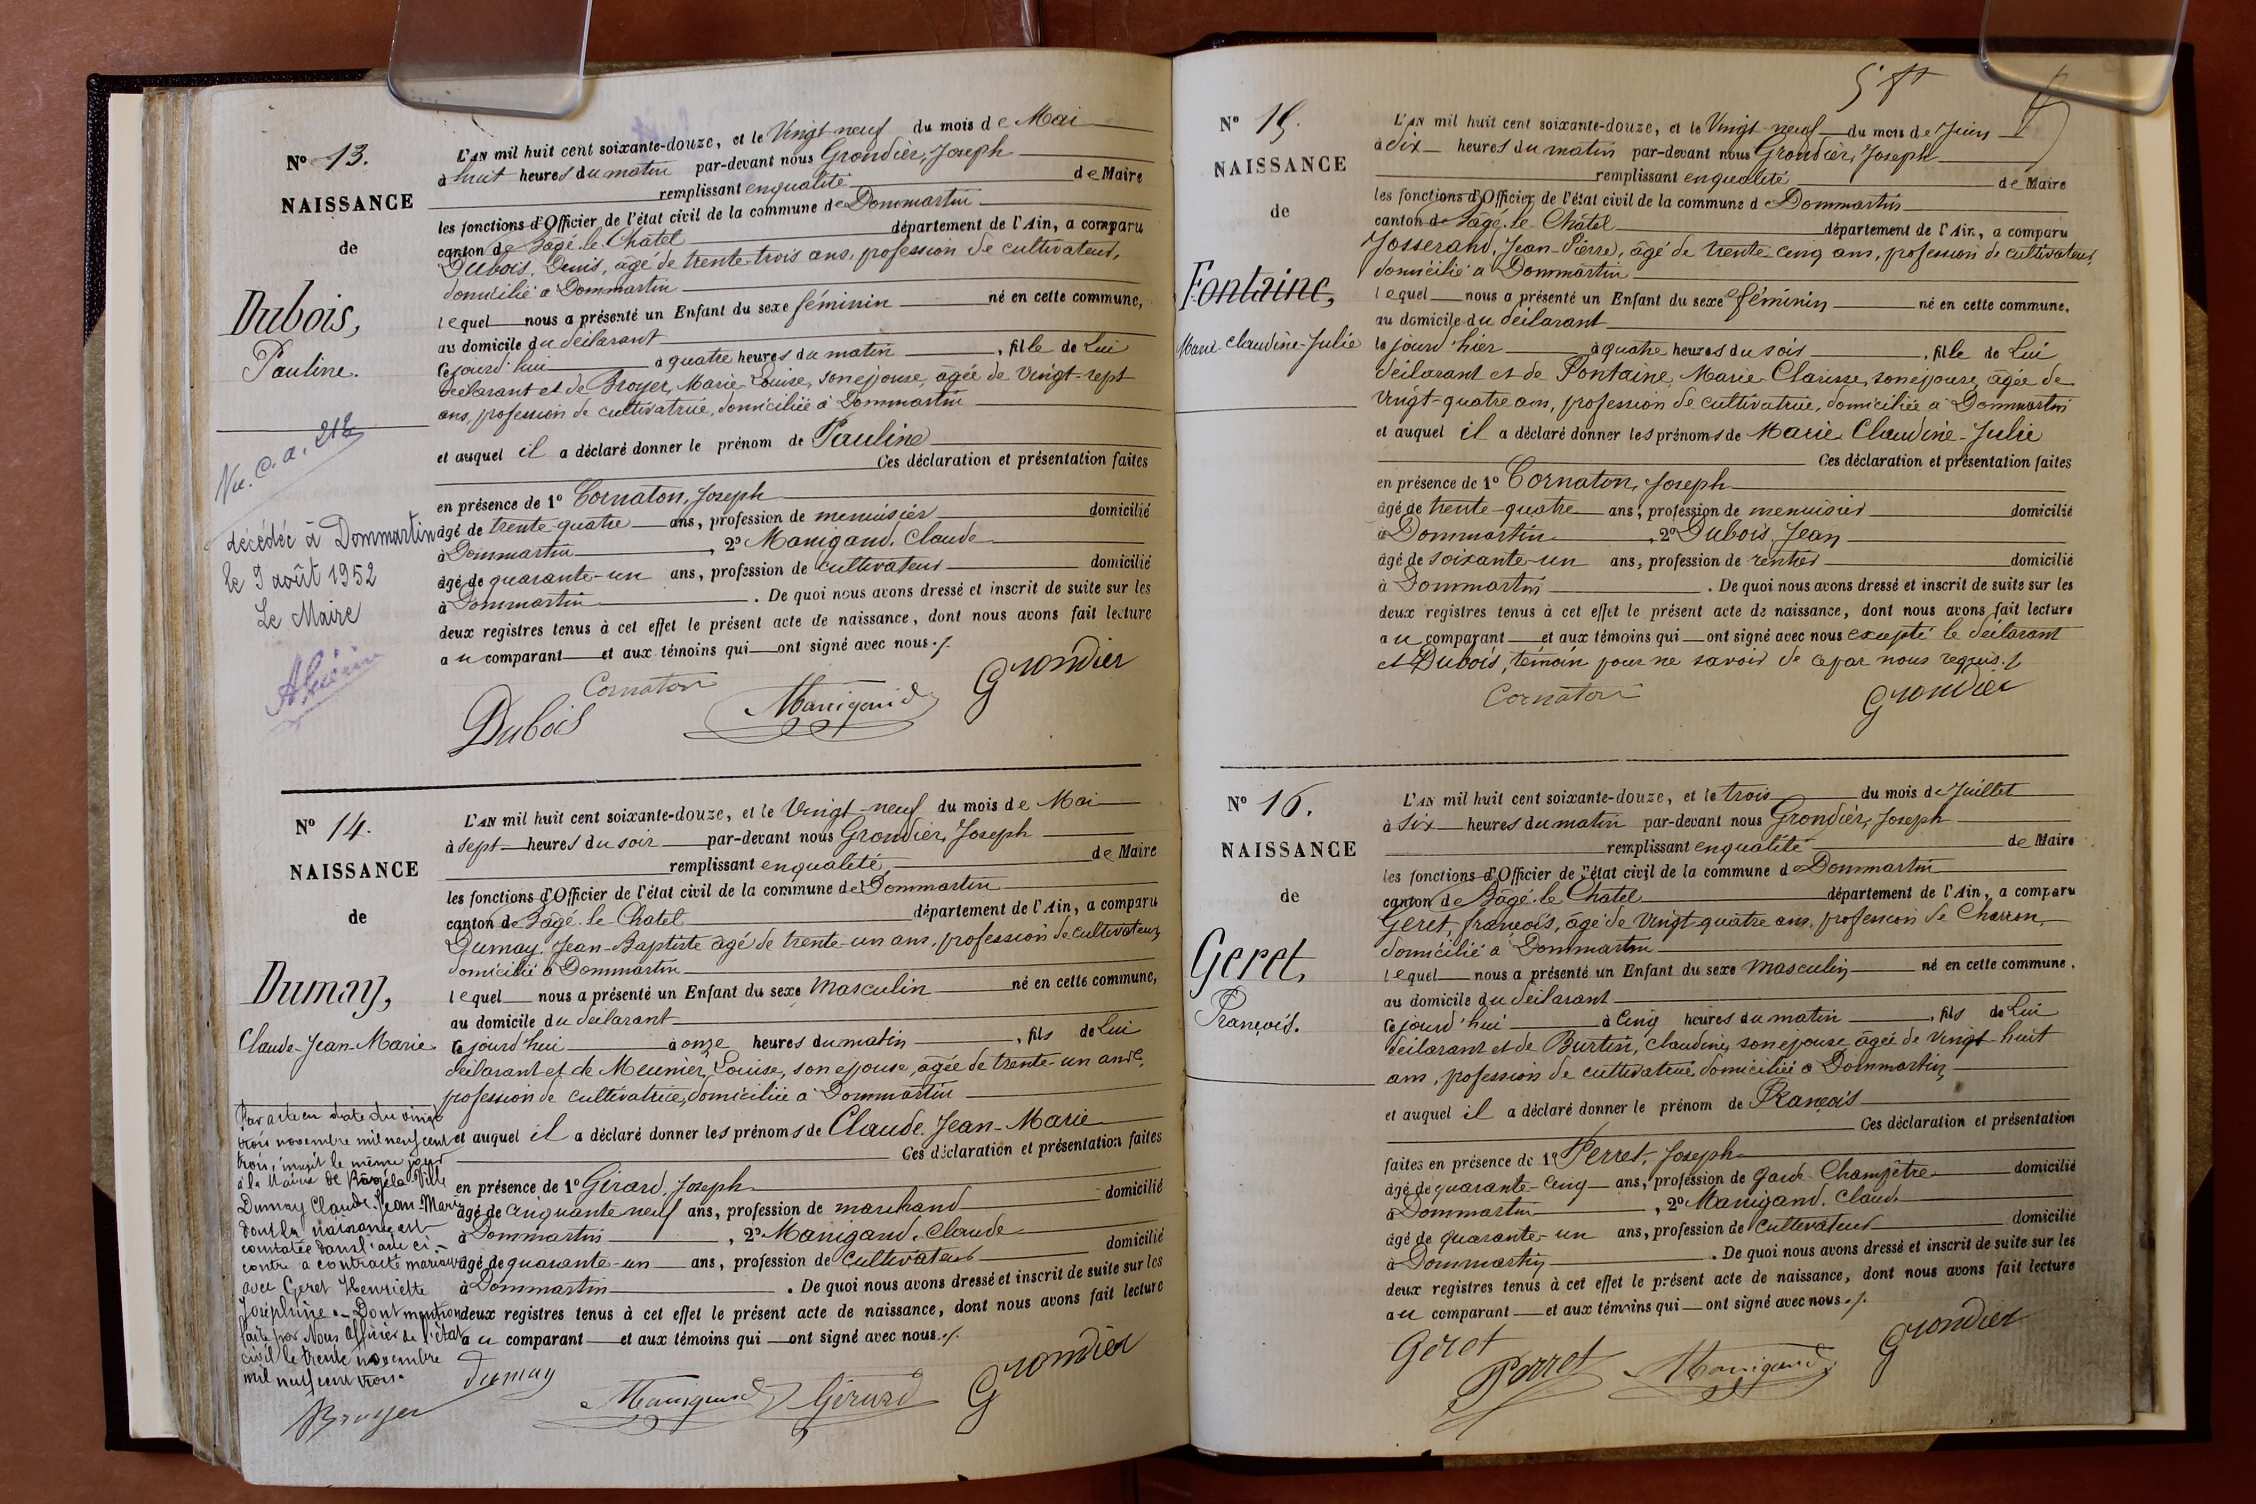 N° 13.
NAISSANCE
de
Dubois,
Pauline.
Nu. C. a. 212
décédée à Dommartin
le 9 août 1952
Le Maire
L'AN mil huit cent soixante-douze, et le Vingt-neuf du mois de Mai
à huit heures du matin par-devant nous Grondier, Joseph
remplissant en qualité de Maire
les fonctions d'Officier de l'état civil de la commune de Dommartin
canton de Bâgé-le-Châtel département de l'Ain, a comparu
Dubois, Denis, âgé de trente-trois ans, profession de cultivateur,
domicilié à Dommartin
lequel nous a présenté un Enfant du sexe féminin né en cette commune,
au domicile du déclarant
cejourd'hui à quatre heures du matin, fille de Lui
déclarant et de Broyer, Marie-Louise, son épouse, âgée de vingt-sept
ans, profession de cultivatrice, domiciliée à Dommartin
et auquel il a déclaré donner le prénom de Pauline
Ces déclaration et présentation faites
en présence de 1° Cornaton, Joseph
âgé de trente-quatre ans, profession de menuisier domicilié
à Dommartin, 2° Manigand, Claude
âgé de quarante-un ans, profession de cultivateur domicilié
à Dommartin. De quoi nous avons dressé et inscrit de suite sur les
deux registres tenus à cet effet le présent acte de naissance, dont nous avons fait lecture
au comparant et aux témoins qui ont signé avec nous./.
Cornaton Grondier
Dubois Manigand
N° 14.
NAISSANCE
de
Dumay,
Claude-Jean-Marie
Par acte en date du vingt
trois novembre mil neuf cent
trois, inscrit le même jour
à la Mairie de Bâgé la Ville
Dumay Claude-Jean-Marie
dont la naissance est
constatée dans l'acte ci-
contre a contracté mariage
avec Geret Henriette
Joséphine.- Dont mention
faite par Nous Officier de l'état
civil le trente novembre
mil neuf cent trois.
Broyer
L'AN mil huit cent soixante-douze, et le Vingt-neuf du mois de Mai
à sept heures du soir par-devant nous Grondier, Joseph
remplissant en qualité de Maire
les fonctions d'Officier de l'état civil de la commune de Dommartin
canton de Bâgé-le-Châtel département de l'Ain, a comparu
Dumay, Jean-Baptiste âgé de trente-un ans, profession de cultivateur,
domicilié à Dommartin
lequel nous a présenté un Enfant du sexe masculin né en cette commune,
au domicile du déclarant
cejourd'hui à onze heures du matin, fils de Lui
déclarant et de Meunier, Louise, son épouse, âgée de trente-un ans,
profession de cultivatrice, domiciliée à Dommartin
et auquel il a déclaré donner les prénoms de Claude-Jean-Marie
Ces déclaration et présentation faites
en présence de 1° Girard, Joseph
âgé de cinquante neuf ans, profession de marchand domicilié
à Dommartin, 2° Manigand, Claude
âgé de quarante-un ans, profession de cultivateur domicilié
à Dommartin. De quoi nous avons dressé et inscrit de suite sur les
deux registres tenus à cet effet le présent acte de naissance, dont nous avons fait lecture
au comparant et aux témoins qui ont signé avec nous./.
Dumay Manigand Girard Grondier
N° 15.
NAISSANCE
de
Fontaine,
Marie-Claudine-Julie
L'AN mil huit cent soixante-douze, et le Vingt-neuf du mois de Juin
à dix heures du matin par-devant nous Grondier, Joseph
remplissant en qualité de Maire
les fonctions d'Officier de l'état civil de la commune de Dommartin
canton de Bâgé-le-Châtel département de l'Ain, a comparu
Josserand, Jean-Pierre, âgé de trente-cinq ans, profession de cultivateur,
domicilié à Dommartin
lequel nous a présenté un Enfant du sexe féminin né en cette commune,
au domicile du déclarant
le jour d'hier à quatre heures du soir, fille de Lui
déclarant et de Fontaine, Marie-Clarisse, son épouse, âgée de
vingt-quatre ans, profession de cultivatrice, domiciliée à Dommartin
et auquel il a déclaré donner les prénoms de Marie-Claudine-Julie
Ces déclaration et présentation faites
en présence de 1° Cornaton, Joseph
âgé de trente-quatre ans, profession de menuisier domicilié
à Dommartin, 2° Dubois, Jean
âgé de soixante-un ans, profession de rentier domicilié
à Dommartin. De quoi nous avons dressé et inscrit de suite sur les
deux registres tenus à cet effet le présent acte de naissance, dont nous avons fait lecture
au comparant et aux témoins qui ont signé avec nous excepté le déclarant
et Dubois, témoin pour ne savoir de ce par nous requis./.
Cornaton Grondier
N° 16.
NAISSANCE
de
Geret,
François.
L'AN mil huit cent soixante-douze, et le trois du mois de Juillet
à six heures du matin par-devant nous Grondier, Joseph
remplissant en qualité de Maire
les fonctions d'Officier de l'état civil de la commune de Dommartin
canton de Bâgé-le-Châtel département de l'Ain, a comparu
Geret, François, âgé de vingt-quatre ans, profession de Charron,
domicilié à Dommartin
lequel nous a présenté un Enfant du sexe masculin né en cette commune,
au domicile du déclarant
cejourd'hui à cinq heures du matin, fils de Lui
déclarant et de Burtin, Claudine, son épouse, âgée de vingt-huit
ans, profession de cultivatrice, domiciliée à Dommartin,
et auquel il a déclaré donner le prénom de François
Ces déclaration et présentation
faites en présence de 1° Perret, Joseph
âgé de quarante-cinq ans, profession de Garde-Champêtre domicilié
à Dommartin, 2° Manigand, Claude
âgé de quarante-un ans, profession de cultivateur domicilié
à Dommartin. De quoi nous avons dressé et inscrit de suite sur les
deux registres tenus à cet effet le présent acte de naissance, dont nous avons fait lecture
au comparant et aux témoins qui ont signé avec nous./.
Geret Perret Manigand Grondier